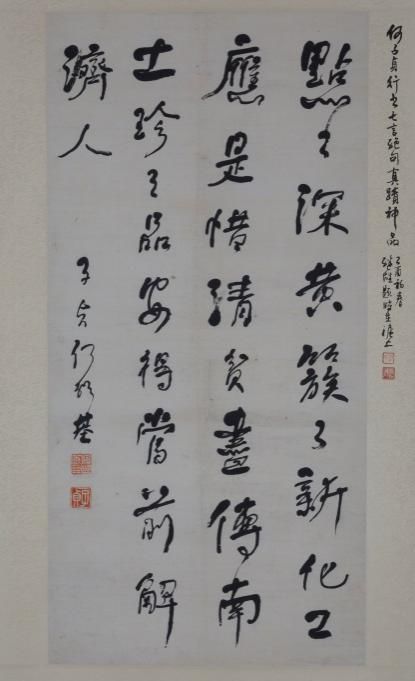 何子貞行書七言絕句真蹟神品
乙酉初春
點〻深黃簇〻新化工
應是惜清貧畫傳南
士珍之品安得當前解
濟人
子貞何紹基